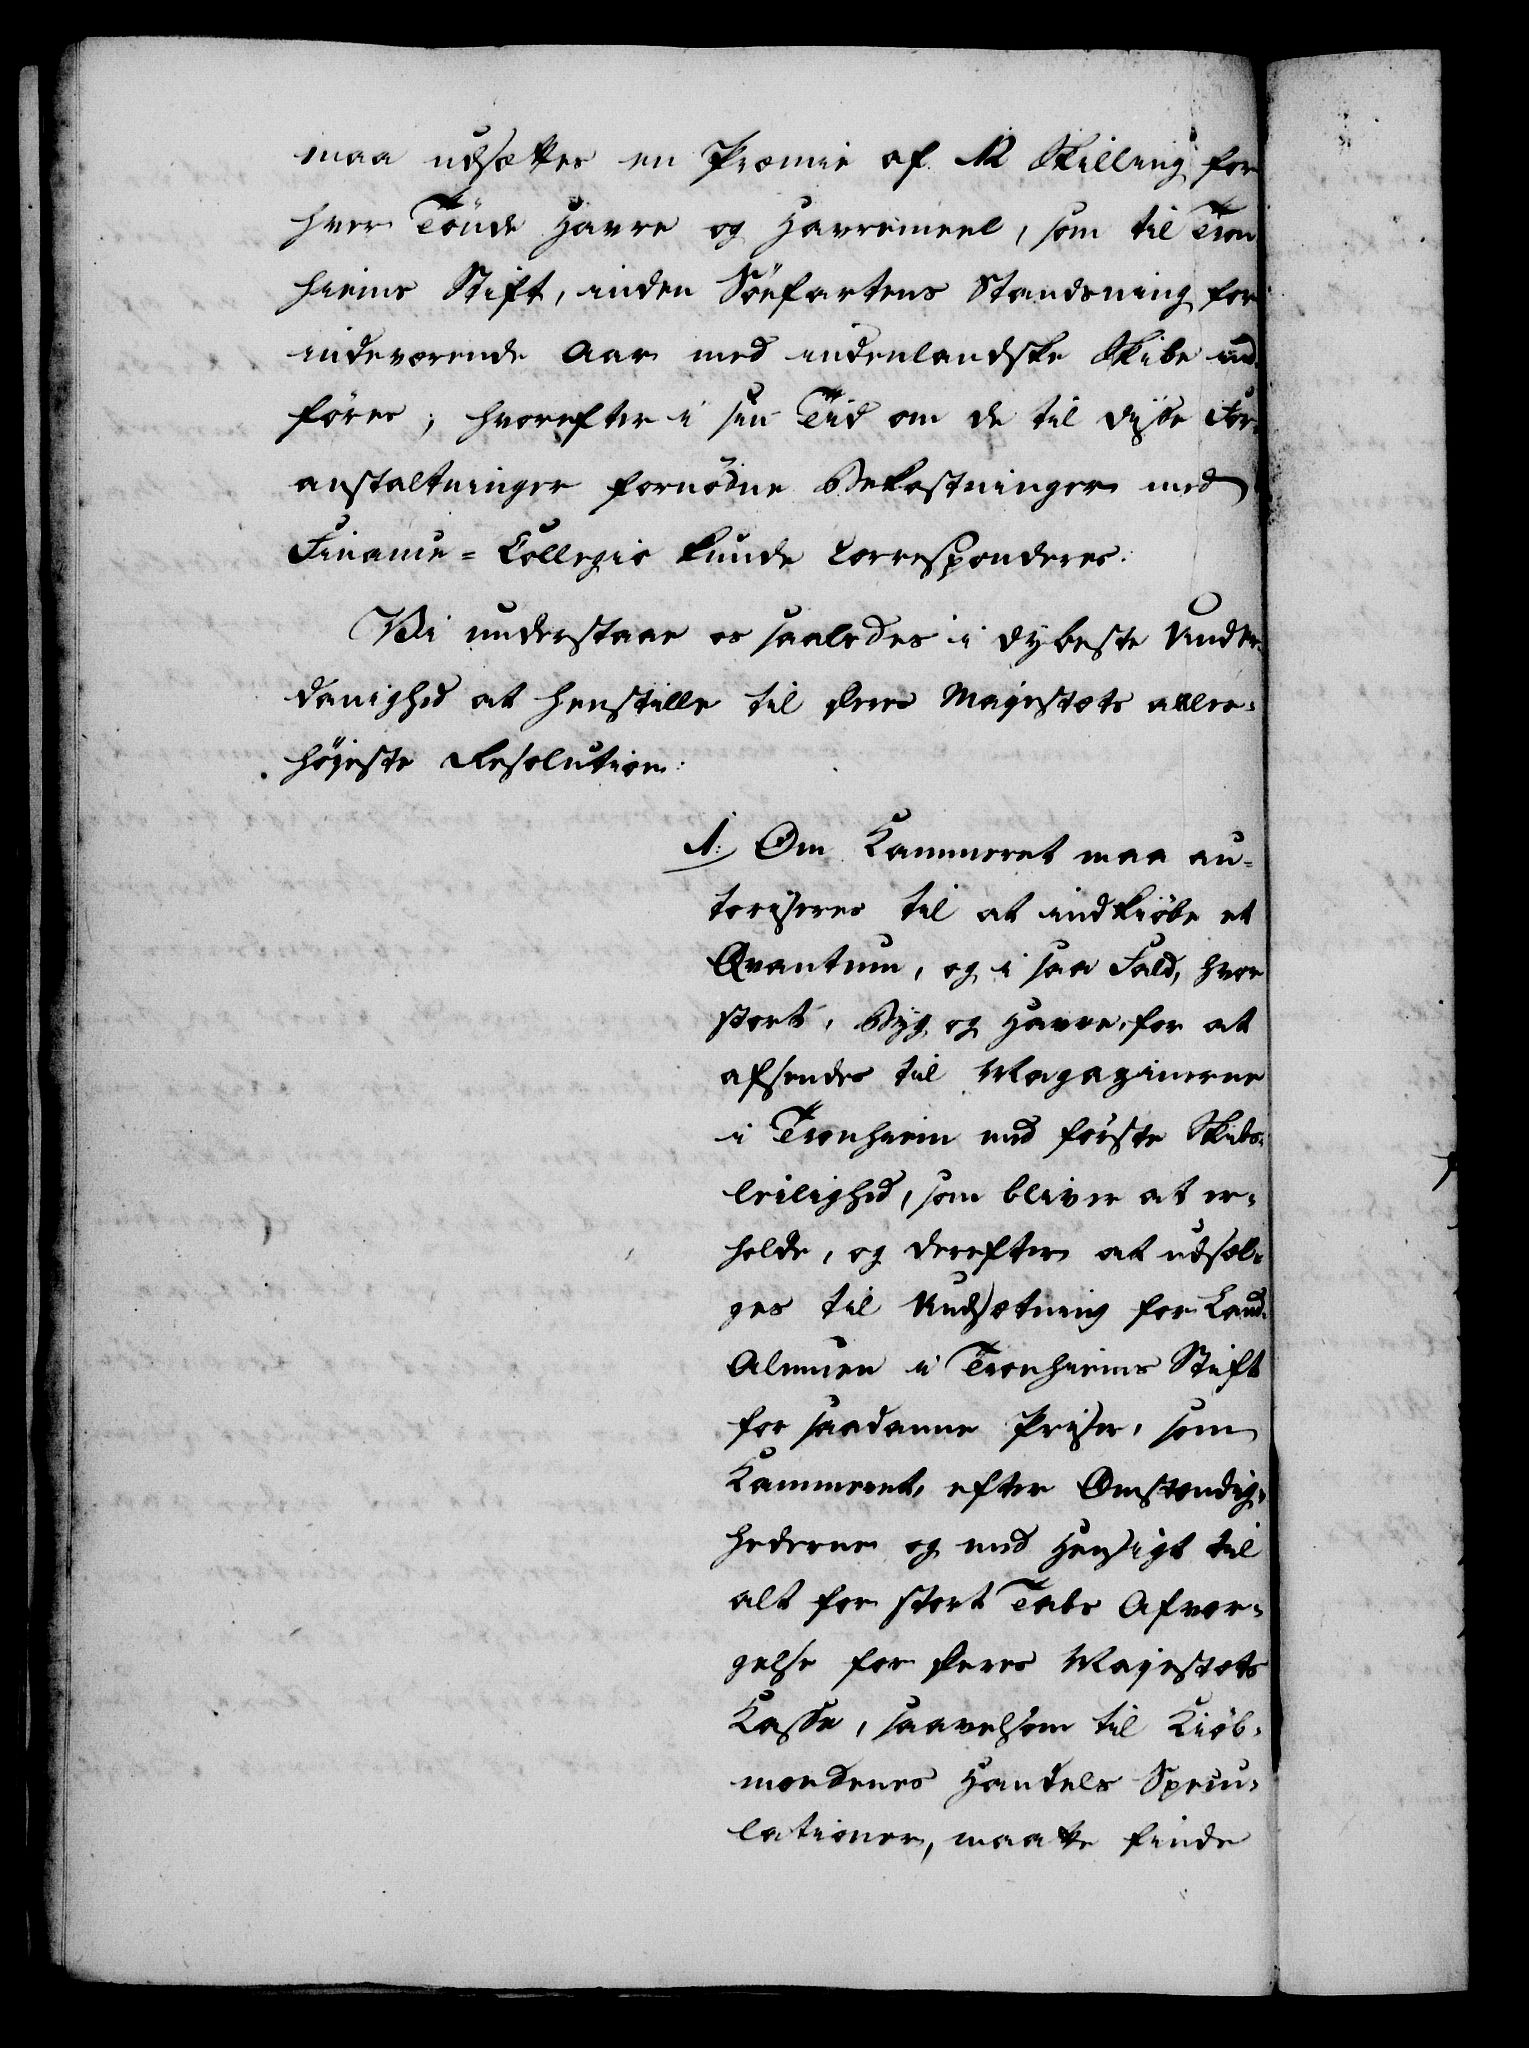 maa udsættes en Præmie af 12 Skilling for
hver Tönde Havre og Havremeel, som til Tron
hiems Stift, inden Söefartens Standsning for
indeværende Aar med indenlandske Skibe ind-
föres; hvorefter i sin Tiid om de til disse For-
anstaltninger fornödne Bekostninger med
Finance-Collegio kunde Corresponderes.
Vi understaae os saaledes i dybeste Under-
danighed at henstille til Deres Majestæts aller-
höjeste Resolution:
1. Om Kammeret maa au-
toriseres til at indkiöbe et
Qvantum, og i saa Fald, hvor
stort, Byg og Havre, for at
afsendes til Magazinerne
i Tronhiem med förste Skibs-
leilighed, som bliver at er-
holde, og derefter at udsæl-
ges til Undsætning for Land-
Almuen i Tronhiems Stift
for saadanne Priser, som
Kammeret, efter Omstændig-
hederne og med Hensigt til
alt for stort Tabs Afvær-
gelse for Deres Majestæts
Kasse, saavelsom til Kiöb-
mændenes Handels Specu-
lationer, maatte finde